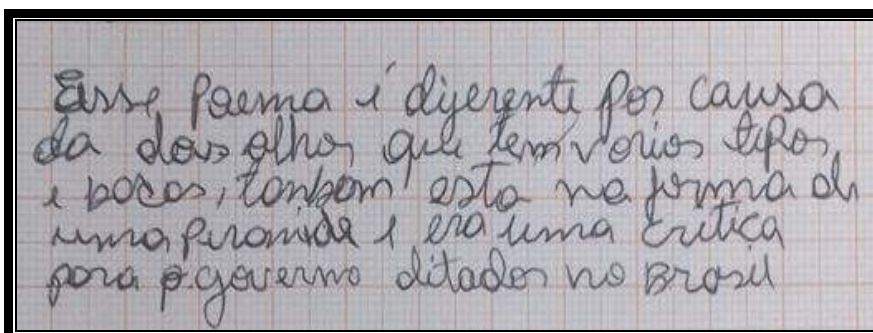 Esse Poema é diferente por causa
da dos olhos que tem varios tipos
e bocas, tanbom esta na forma de
uma piramide e era uma critica
para o governo ditador no Brasil